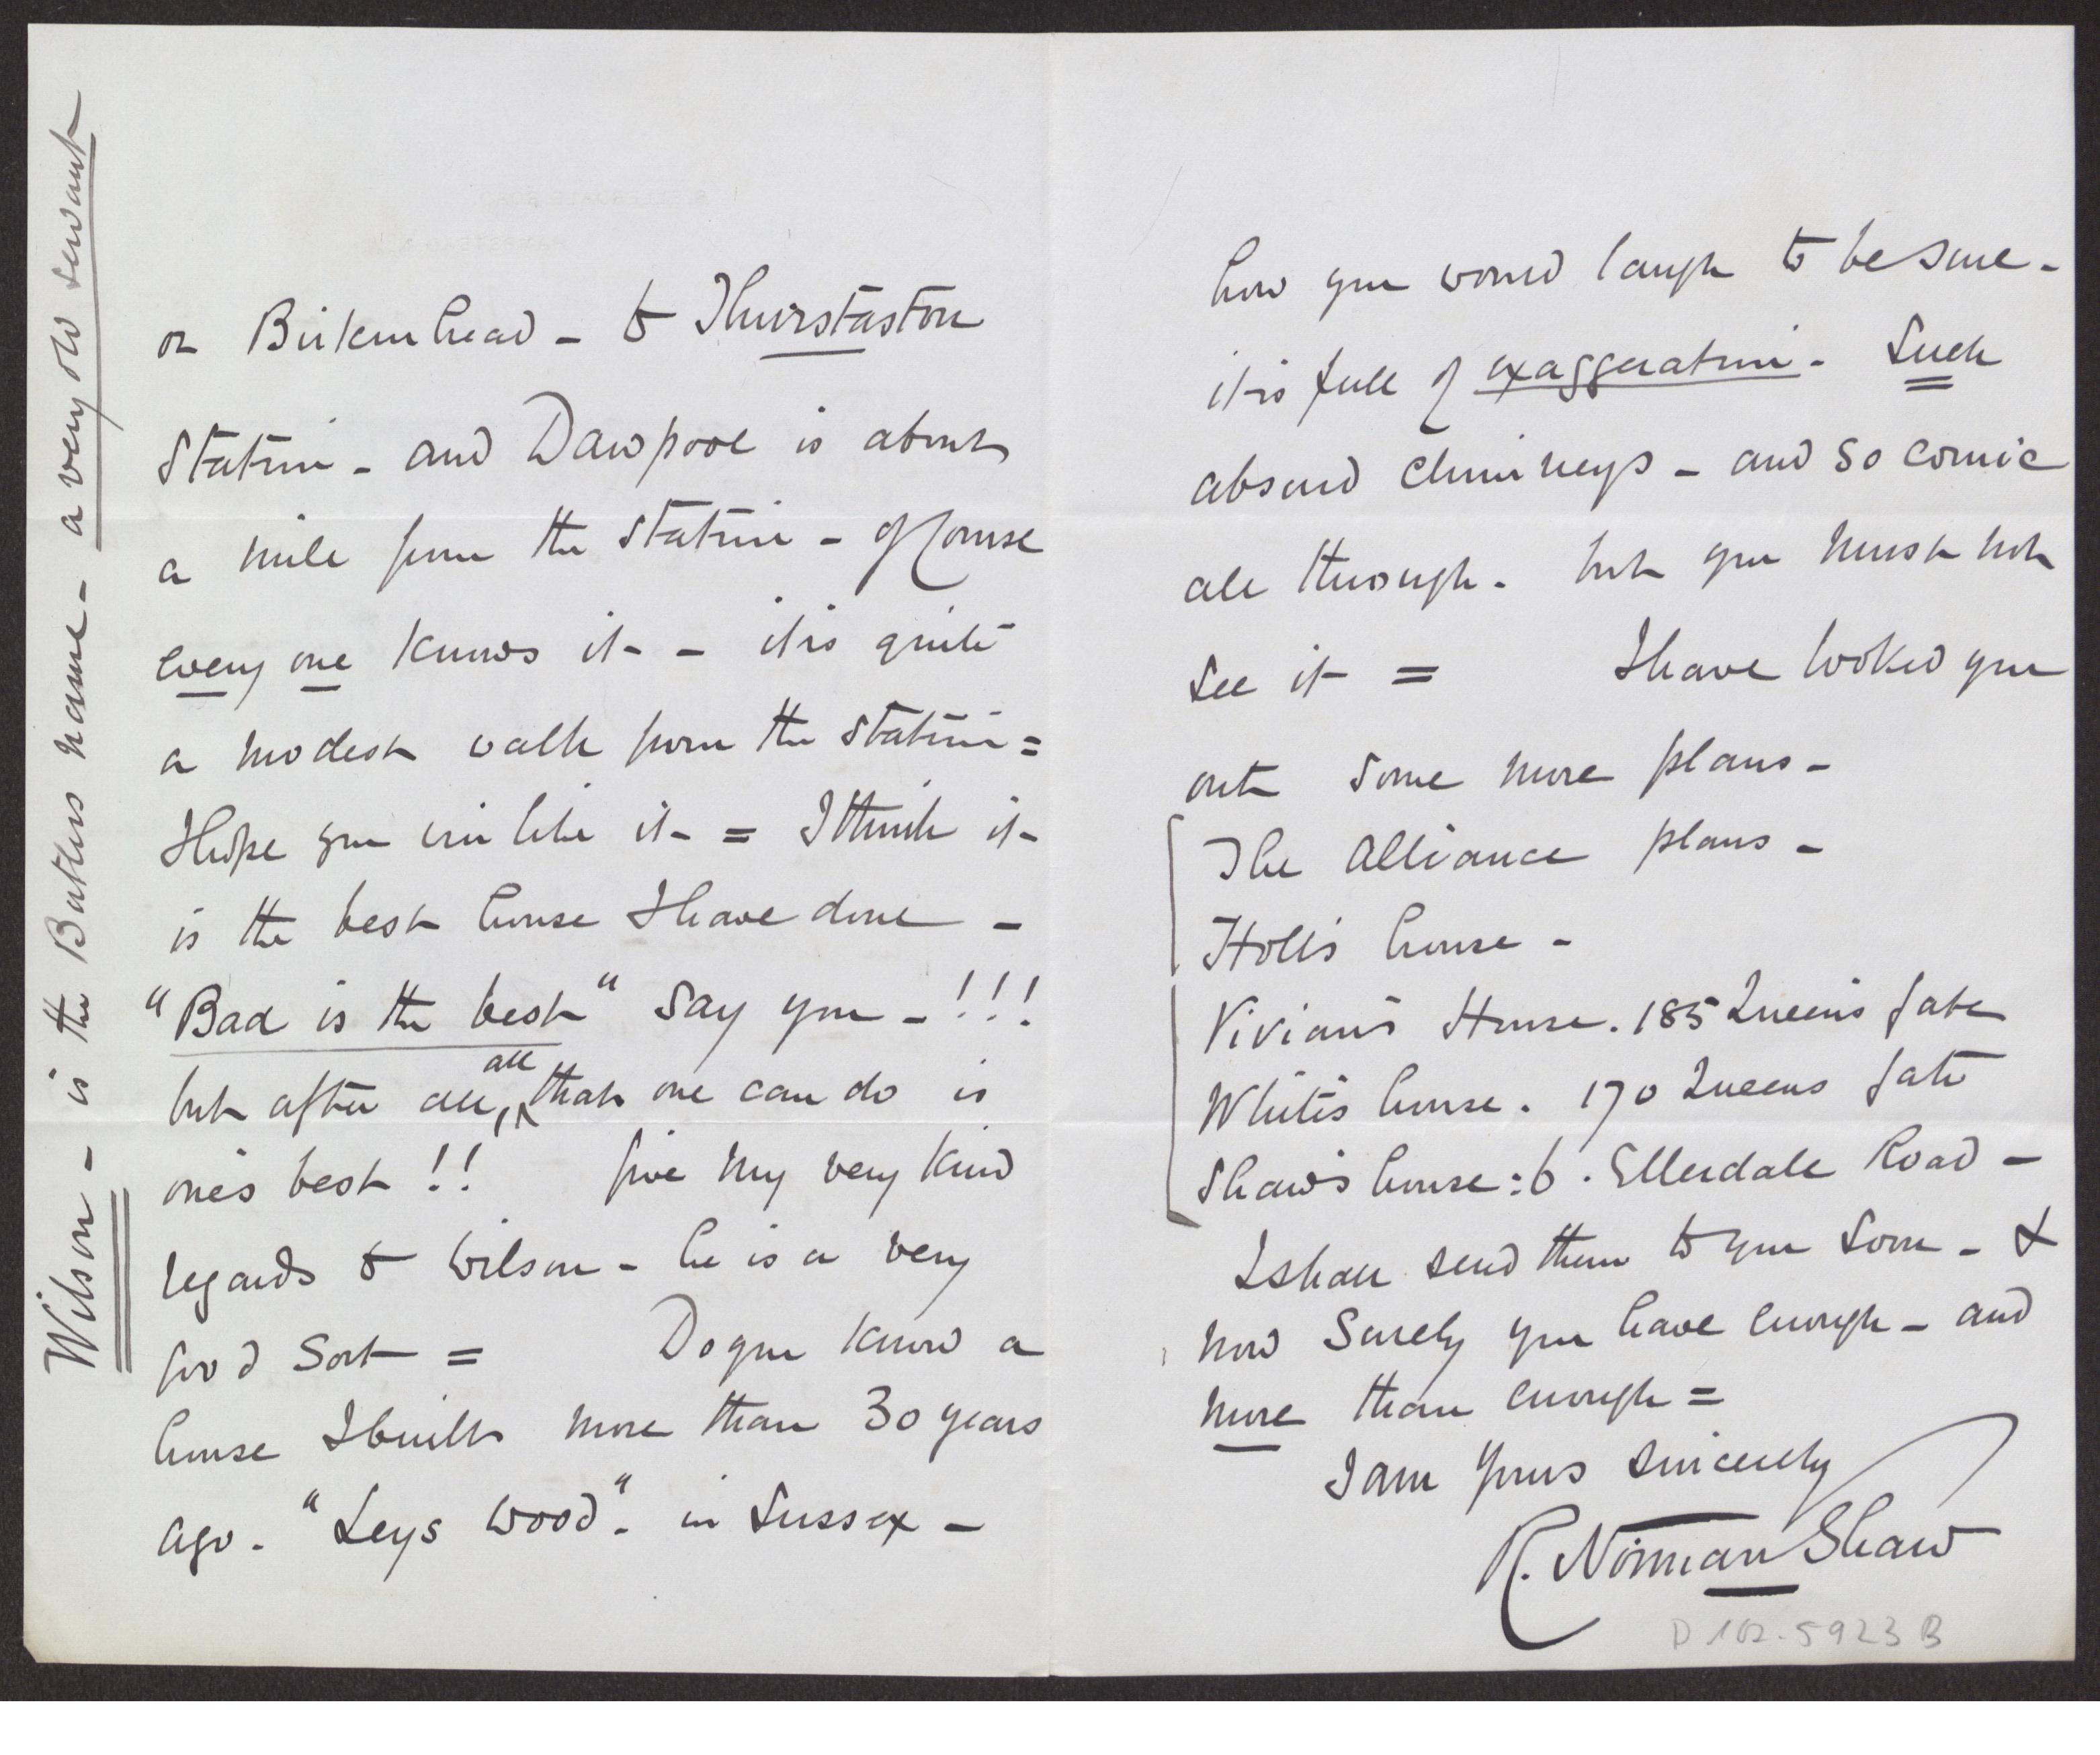 or Birkenhead - to Thurstaston
Station - and Dawpool is about
a mile from the station - of course
every one knows it - it is quite
a modest walk from the station =
I hope you will like it - = I think it -
is the best house I have done -
"Bad is the best" say you - !!!
but after all, all that one can do is
one's best !! Give my very kind
regards to Wilson - he is a very
good sort = Do you know a
house I built more than 30 years
ago. "Leys Wood". in Sussex -
Wilson - is the Butlers name - a very old servant
how you would laugh to be sure -
it is full of exaggeration - Such
absurd chimneys - and so comic
all through. but you must not
see it = I have looked you
out some more plans -
The Alliance plans -
Holl's house -
Vivian's House. 185 Queen's Gate
White's house. 170 Queens Gate
Shaw's house: 6. Ellerdale Road -
I shall send them to you soon - &
now surely you have enough - and
more than enough =
I am yours sincerely
R. Norman Shaw
D 102.5923 B